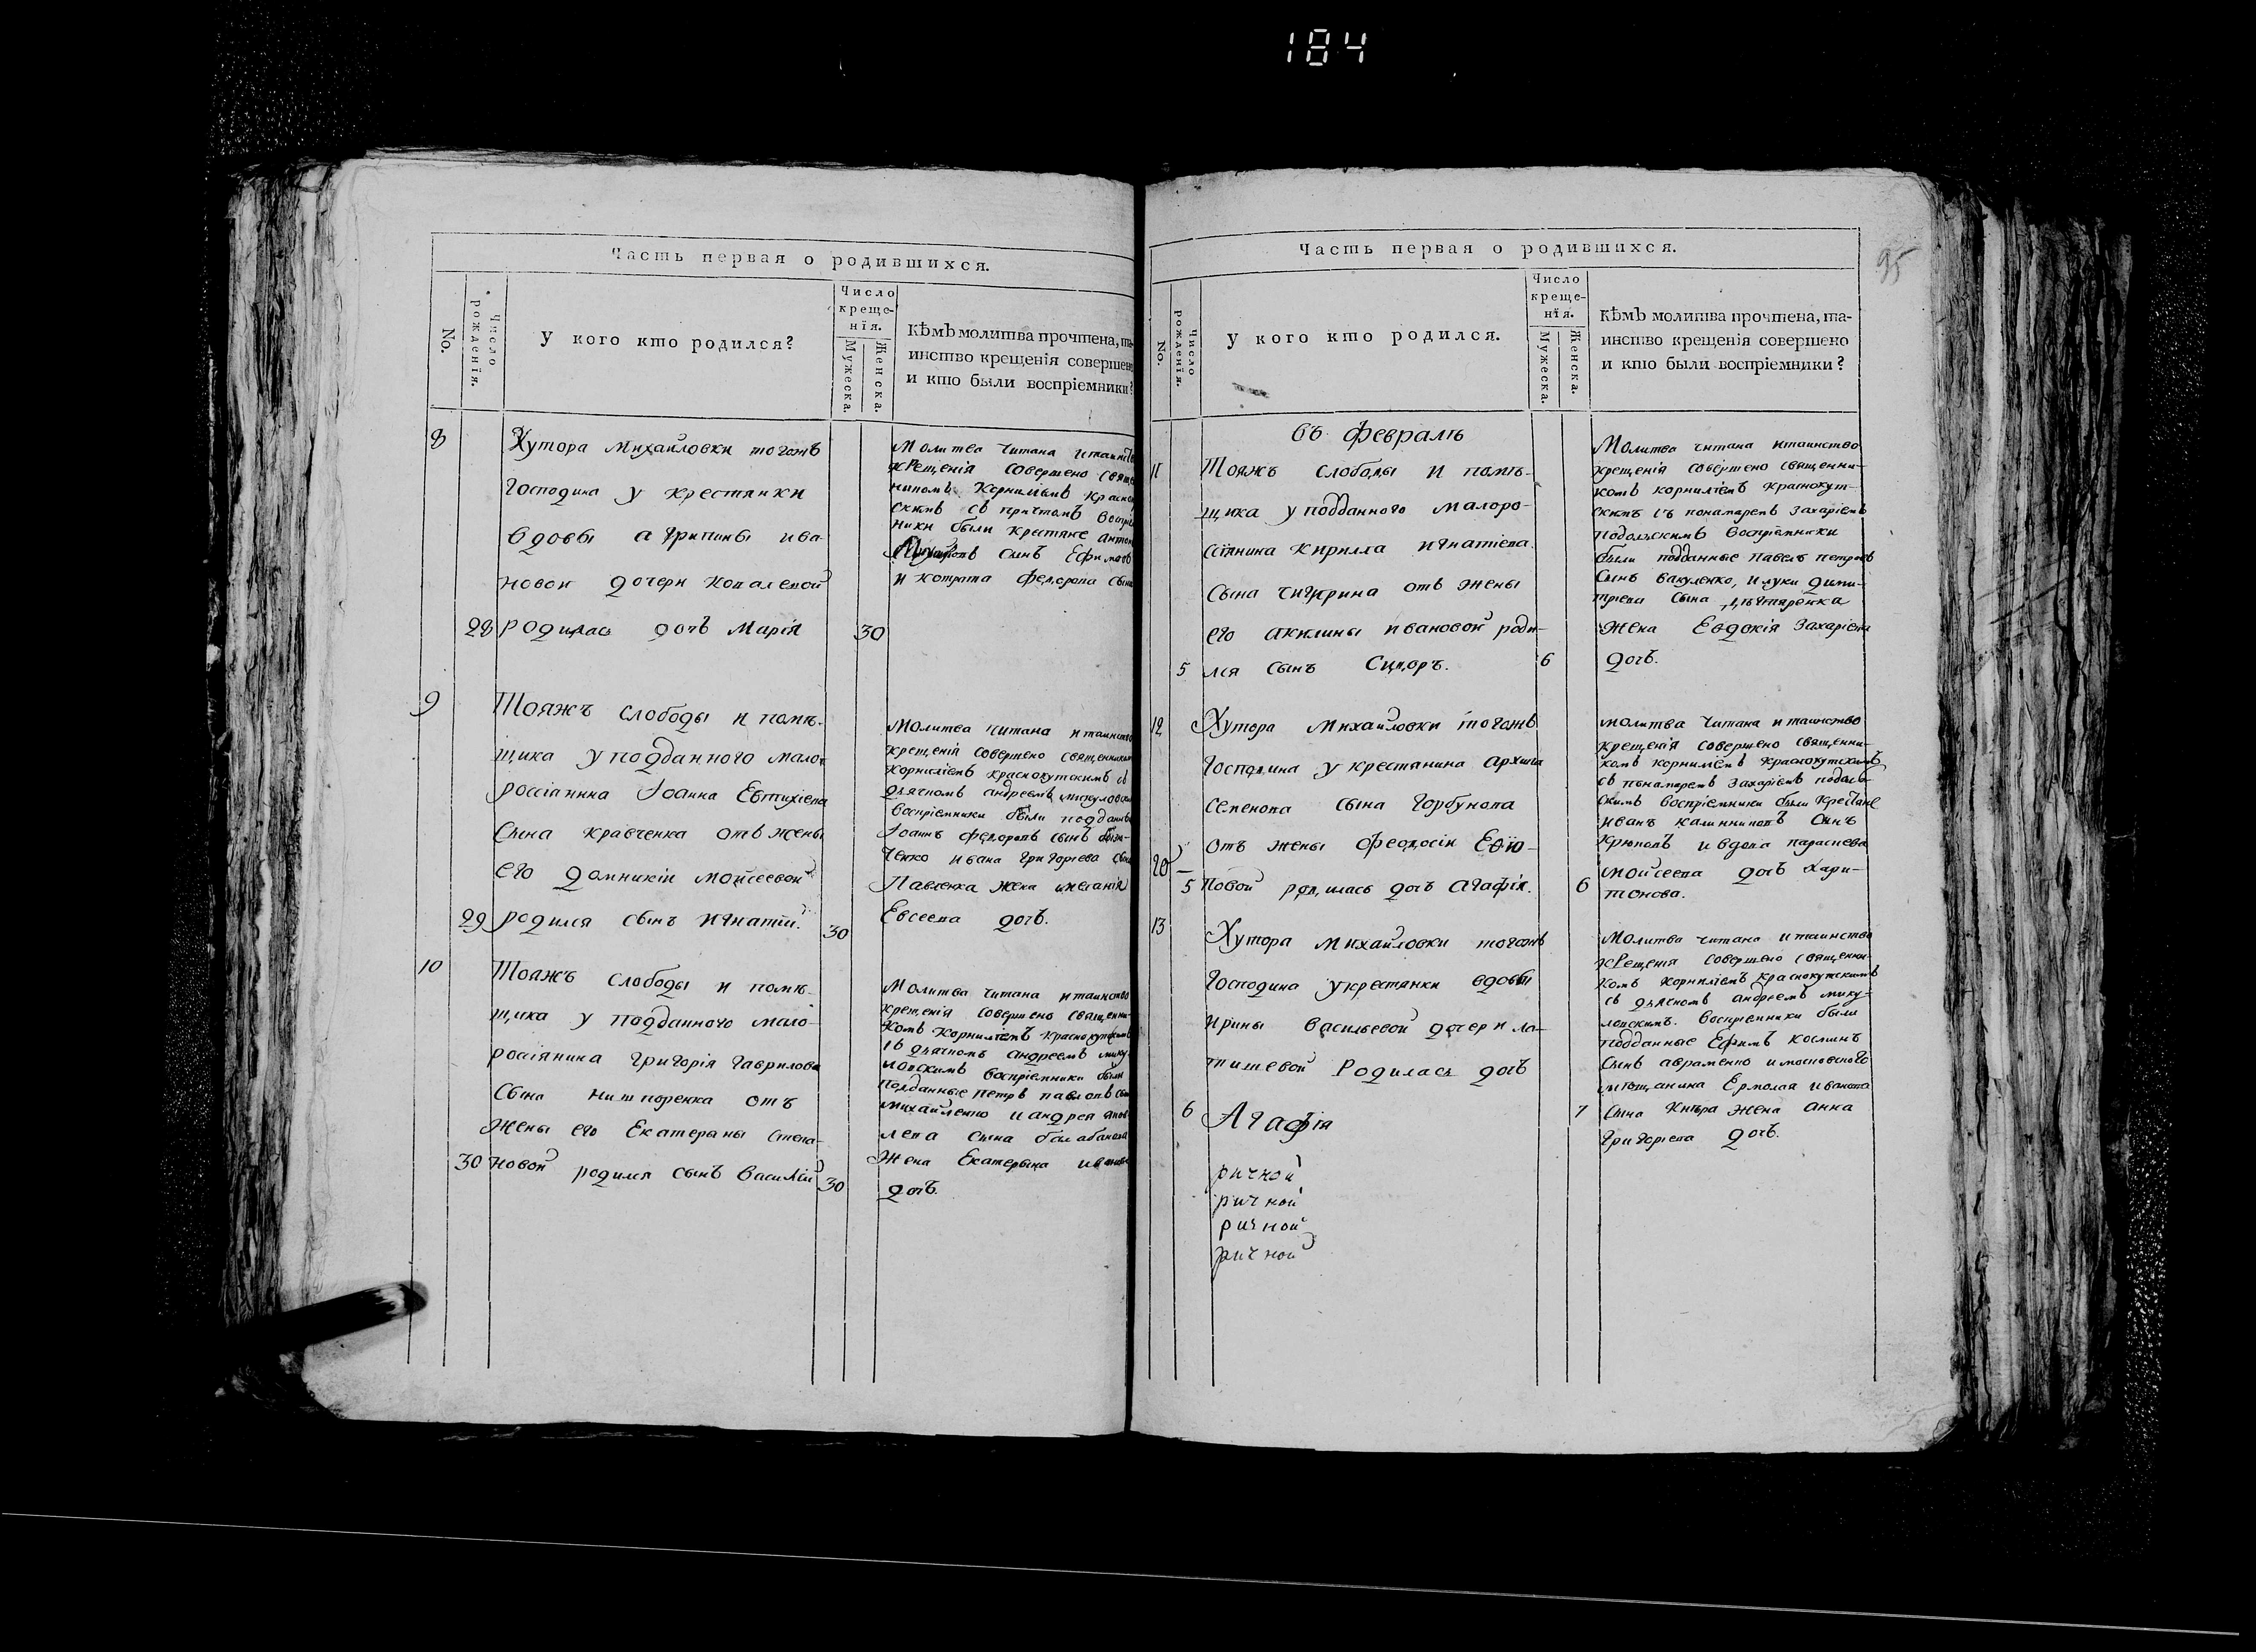 184
Часть первая о родившихся.
No.
Число рожденія.
У кого кто родился?
Число
креще-
нія.
Мужеска.
Женска.
Кѣмъ молитва прочтена, та-
инство крещенія совершено
и кто были воспріемники?
8
Хутора Михайловки тогожъ
Господина у крестянки
вдовы агрипины ива-
новой дочери Ковалевой
28 родилась дочъ Марія 30
Молитва читана итаинство
крещенія совершено свяще
никомъ Корниліемъ Красно
скимъ съ причтомъ воспріе
ники были крестяне антон
сынъ Ефимовъ
и кондрата федорова сына
9
Тояжъ слободы и помѣ-
щика у подданного мало-
россіянина Іоанна Евтихіева
Сына кравченка отъ жены
его домникіи мойсеевой
29 родился сынъ игнатій. 30
Молитва читана итаинство
крещенія совершено священником
Корниліемъ краснокутскимъ съ
дьячкомъ андреемъ микуловским
воспріемники были подданные
Іоаннъ федоровъ сынъ
ченко ивана григоріева сына
Павленка жена меланія
Евсеева дочъ.
10
Тояжъ слободы и помѣ-
щика у подданного мало-
россіянина григорія гаврилова
Сына нитпоренка отъ
Жены его Екатерины степа-
30 новой родился сынъ василій 30
Молитва читана итаинство
крещенія совершено священни-
комъ Корниліемъ Краснокутскимъ
съ дьячкомъ андреемъ мику-
ловскимъ воспріемники были
подданные петръ павловъ сын
михайленко и андрея яков
лева сына балабанова
Жена Екатерина иванова
дочъ.
95
Часть первая о родившихся.
No.
Число рожденія.
У кого кто родился.
Число
креще-
нія.
Мужеска.
Женска.
Кѣмъ молитва прочтена, та-
инство крещенія совершено
и кто были воспріемники?
въ февралѣ
11
Тояжъ слободы и помѣ-
щика у подданного малоро-
ссіянина кирилла игнатіева
Сына чигирина отъ жены
его акилины ивановой роди-
5 лся сынъ Сидоръ. 6
Молитва читана итаинство
крещенія совершено священни-
комъ корниліемъ краснокут-
скимъ съ понамаремъ захаріемъ
подольскимъ воспріемники
были подданные павелъ петровъ
Сынъ вакуленко, и луки дими-
тріева сына
жена Евдокія захаріева
дочъ.
12
Хутора Михайловки тогожъ
Господина у крестянина архипа
семенова сына горбунова
отъ жены феодосіи Евїю-
20
5 повой родилась дочъ агафія. 6
молитва читана итаинство
крещенія совершено священни-
комъ корниліемъ Краснокутскимъ
съ понамаремъ захаріемъ подоль-
скимъ воспріемники были крестяне
иванъ калининовъ сынъ
Крюковъ и вдова параскева
мойсеева дочъ хари-
тонова.
13
Хутора михайловки тогожъ
господина укрестянки вдовы
ирины васильевой дочери ла-
тишевой Родилась дочъ
6 Агафія 7
Молитва читана итаинство
крещенія совершено священни-
комъ Корниліемъ краснокутскимъ
съ дьячкомъ андреемъ мику-
ловскимъ. воспріемники были
подданные Ефимъ косминъ
Сынъ авраменко имосковского
мещанина Ермолая иванова
сына жена анна
григоріева дочъ.
ричной
ричной
ричной
ричной